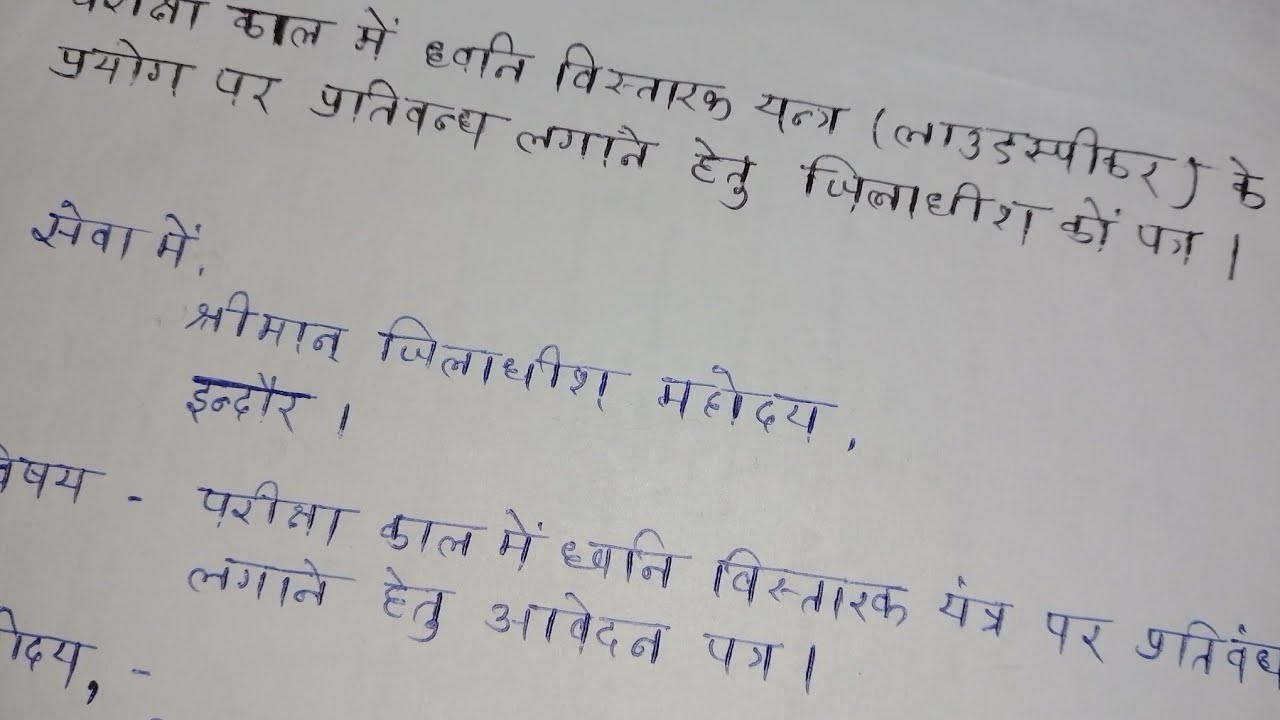 परीक्षा काल में ध्वनि विस्तारक यन्त्र (लाउडस्पीकर) के
प्रयोग पर प्रतिबन्ध लगाने हेतु जिलाधीश कों पत्र।
सेवा में,
श्रीमान् जिलाधीश महोदय,
इन्दौर।
विषय - परीक्षा काल में ध्वनि विस्तारक यंत्र पर प्रतिबंध
लगाने हेतु आवेदन पत्र।
होदय, -